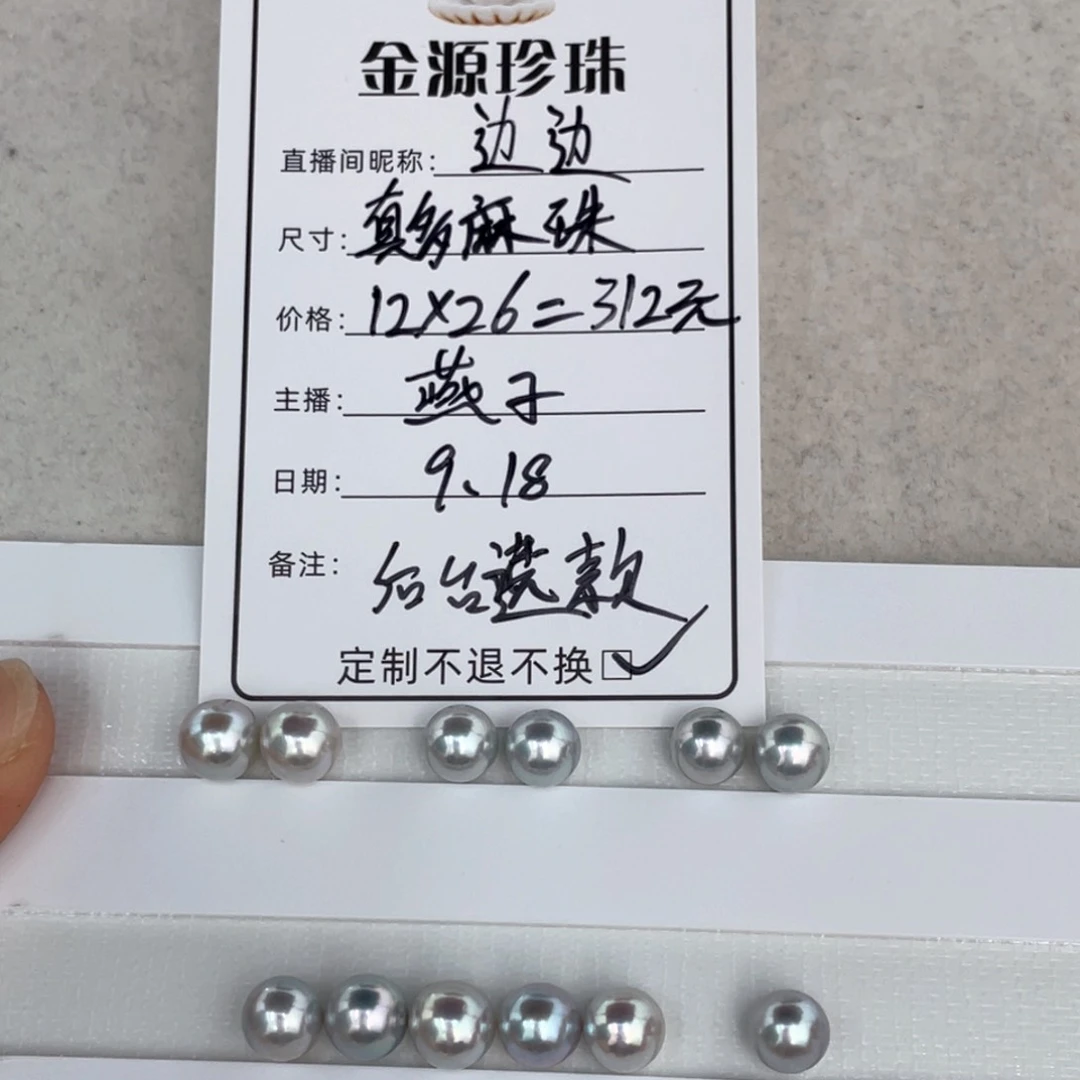 金源珍珠
直播间昵称: 边边
尺寸: 真多麻珠
价格: 12×26=312元
主播: 燕子
日期: 9、18
备注: 后台选款
定制不退不换☑